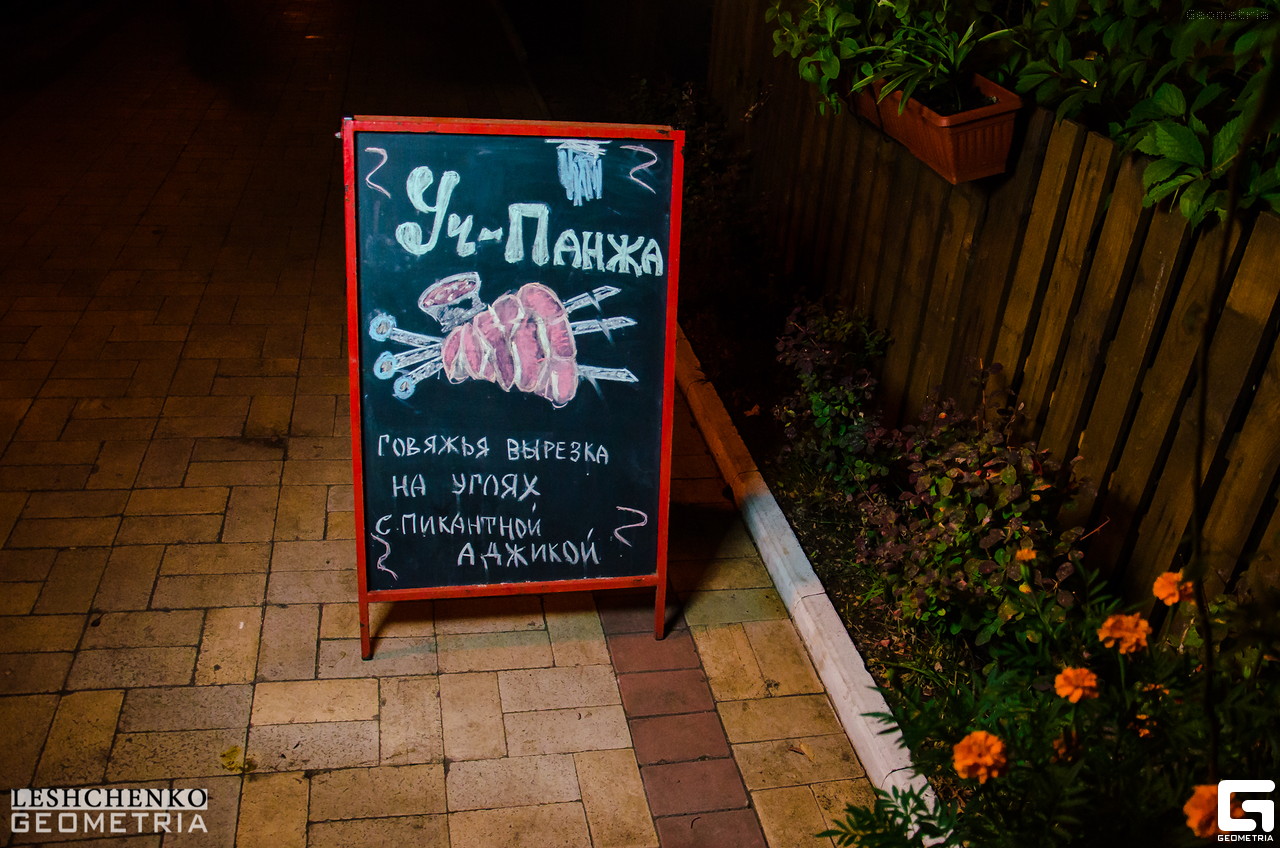 Geometria
Уч-Панжа
говяжья вырезка
на углях
с пикантной
аджикой
LESHCHENKO
GEOMETRIA
GEOMETRIA